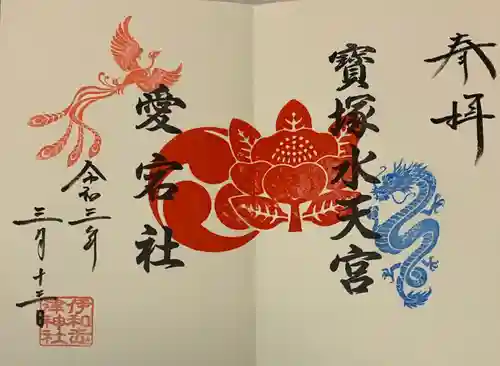 奉拝
寳塚水天宮
愛宕社
令和三年
三月十三日
伊和志
津神社